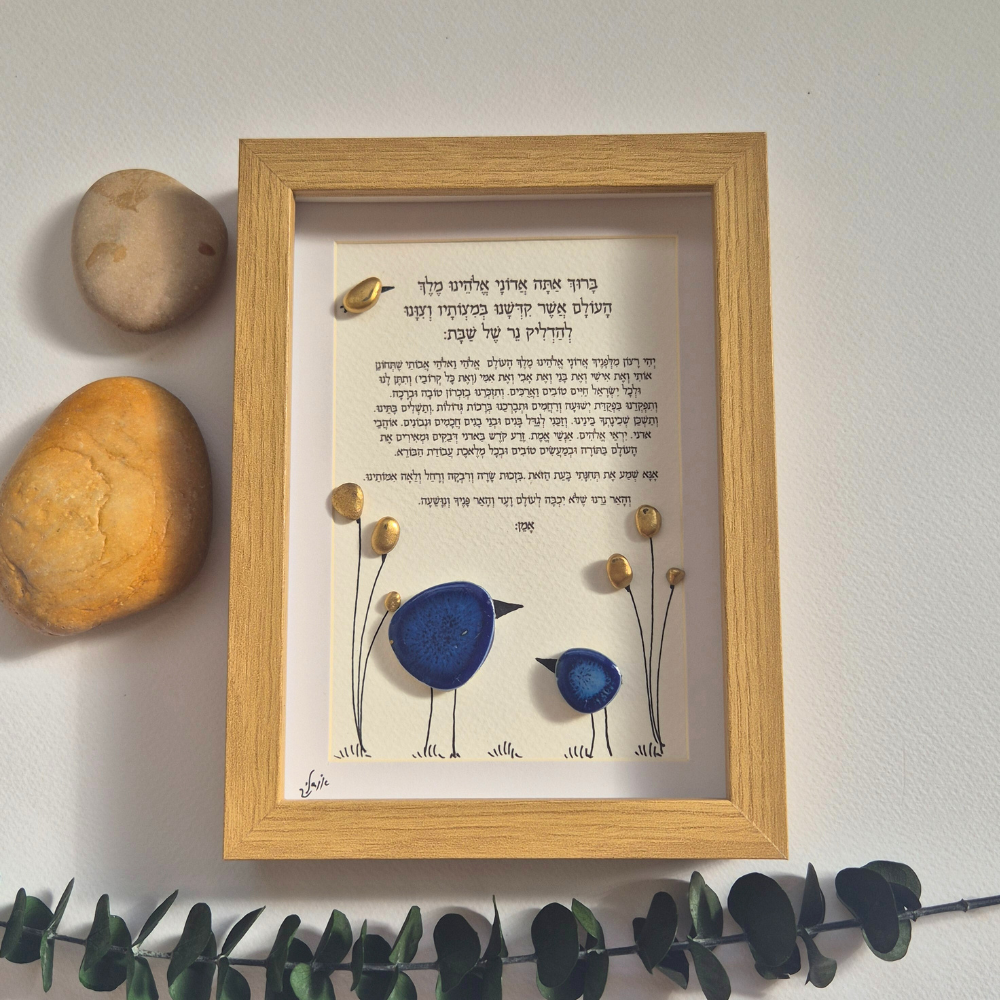 בָּרוּךְ אַתָּה אֲדוֹנָי אֱלֹהֵינוּ מֶלֶךְ
הָעוֹלָם אֲשֶׁר קִדְּשָׁנוּ בְּמִצְוֹתָיו וְצִוָּנוּ
לְהַדְלִיק נֵר שֶׁל שַׁבָּת:
יְהִי רָצוֹן מִלְּפָנֶיךָ אֲדוֹנָי אֱלֹהֵינוּ מֶלֶךְ הָעוֹלָם אֱלֹהַי וֵאלֹהֵי אֲבוֹתַי שֶׁתְּחוֹנֵן
אוֹתִי וְאֶת אִישִׁי וְאֶת בָּנַי וְאֶת אָבִי וְאֶת אִמִּי (וְאֶת כָּל קְרוֹבַי) וְתִתֶּן לָנוּ
וּלְכָל יִשְׂרָאֵל חַיִּים טוֹבִים וַאֲרֻכִּים. וְתִזְכְּרֵנוּ בְּזִכְרוֹן טוֹבָה וּבְרָכָה.
וְתִפְקְדֵנוּ בִּפְקֻדַּת יְשׁוּעָה וְרַחֲמִים וּתְבָרְכֵנוּ בְּרָכוֹת גְּדוֹלוֹת. וְתַשְׁלִים בָּתֵּינוּ.
וְתַשְׁכֵּן שְׁכִינָתְךָ בֵּינֵינוּ. וְזַכֵּנִי לְגַדֵּל בָּנִים וּבְנֵי בָנִים חֲכָמִים וּנְבוֹנִים. אוֹהֲבֵי
אדני. יִרְאֵי אֱלֹהִים. אַנְשֵׁי אֱמֶת. זֶרַע קֹדֶשׁ בַּאדני דְּבֵקִים וּמְאִירִים אֶת
הָעוֹלָם בַּתּוֹרָה וּבְמַעֲשִׂים טוֹבִים וּבְכָל מְלֶאכֶת עֲבוֹדַת הַבּוֹרֵא.
אָנָּא שְׁמַע אֶת תְּחִנָּתִי בָּעֵת הַזֹּאת. בִּזְכוּת שָׂרָה וְרִבְקָה וְרָחֵל וְלֵאָה אִמּוֹתֵינוּ.
וְהָאֵר נֵרֵנוּ שֶׁלֹּא יִכְבֶּה לְעוֹלָם וָעֶד וְהָאֵר פָּנֶיךָ וְנִוָּשֵׁעָה.
אָמֵן: